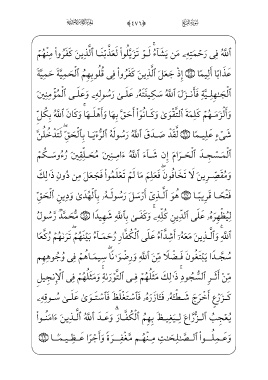 ﴿٤٧١﴾
ٱللَّهُ فِى رَحْمَتِهِۦ مَن يَشَآءُ ۚ لَوْ تَزَيَّلُوا۟ لَعَذَّبْنَا ٱلَّذِينَ كَفَرُوا۟ مِنْهُمْ
عَذَابًا أَلِيمًا ٢٥ إِذْ جَعَلَ ٱلَّذِينَ كَفَرُوا۟ فِى قُلُوبِهِمُ ٱلْحَمِيَّةَ حَمِيَّةَ
ٱلْجَـٰهِلِيَّةِ فَأَنزَلَ ٱللَّهُ سَكِينَتَهُۥ عَلَىٰ رَسُولِهِۦ وَعَلَى ٱلْمُؤْمِنِينَ
وَأَلْزَمَهُمْ كَلِمَةَ ٱلتَّقْوَىٰ وَكَانُوٓا۟ أَحَقَّ بِهَا وَأَهْلَهَا ۚ وَكَانَ ٱللَّهُ بِكُلِّ
شَىْءٍ عَلِيمًا ٢٦ لَّقَدْ صَدَقَ ٱللَّهُ رَسُولَهُ ٱلرُّءْيَا بِٱلْحَقِّ ۖ لَتَدْخُلُنَّ
ٱلْمَسْجِدَ ٱلْحَرَامَ إِن شَآءَ ٱللَّهُ ءَامِنِينَ مُحَلِّقِينَ رُءُوسَكُمْ
وَمُقَصِّرِينَ لَا تَخَافُونَ ۖ فَعَلِمَ مَا لَمْ تَعْلَمُوا۟ فَجَعَلَ مِن دُونِ ذَٰلِكَ
فَتْحًا قَرِيبًا ٢٧ هُوَ ٱلَّذِىٓ أَرْسَلَ رَسُولَهُۥ بِٱلْهُدَىٰ وَدِينِ ٱلْحَقِّ
لِيُظْهِرَهُۥ عَلَى ٱلدِّينِ كُلِّهِۦ ۚ وَكَفَىٰ بِٱللَّهِ شَهِيدًا ٢٨ مُّحَمَّدٌ رَّسُولُ
ٱللَّهِ ۚ وَٱلَّذِينَ مَعَهُۥٓ أَشِدَّآءُ عَلَى ٱلْكُفَّارِ رُحَمَآءُ بَيْنَهُمْ ۖ تَرَىٰهُمْ رُكَّعًا
سُجَّدًا يَبْتَغُونَ فَضْلًا مِّنَ ٱللَّهِ وَرِضْوَٰنًا ۖ سِيمَاهُمْ فِى وُجُوهِهِم
مِّنْ أَثَرِ ٱلسُّجُودِ ۚ ذَٰلِكَ مَثَلُهُمْ فِى ٱلتَّوْرَىٰةِ ۚ وَمَثَلُهُمْ فِى ٱلْإِنجِيلِ
كَزَرْعٍ أَخْرَجَ شَطْـَٔهُۥ فَـَٔازَرَهُۥ فَٱسْتَغْلَظَ فَٱسْتَوَىٰ عَلَىٰ سُوقِهِۦ
يُعْجِبُ ٱلزُّرَّاعَ لِيَغِيظَ بِهِمُ ٱلْكُفَّارَ ۗ وَعَدَ ٱللَّهُ ٱلَّذِينَ ءَامَنُوا۟
وَعَمِلُوا۟ ٱلصَّـٰلِحَـٰتِ مِنْهُم مَّغْفِرَةً وَأَجْرًا عَظِيمًۢا ٢٩